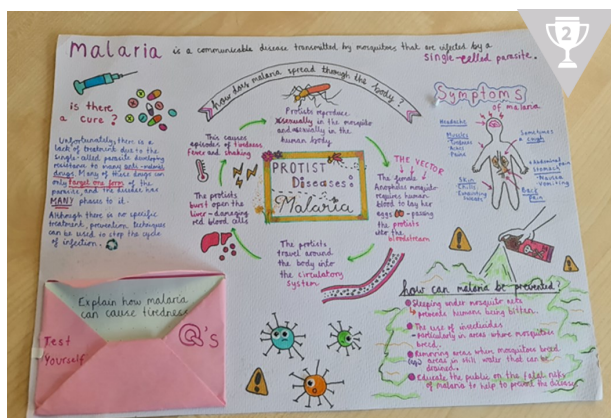 Malaria is a communicable disease transmitted by mosquitoes that are infected by a
single-celled parasite.
is there
a cure?
Unfortunately, there is a
lack of treatment due to the
single-celled parasite developing
resistance to many anti-malarial
drugs. Many of these drugs
only target one form of the
parasite, and the disease has
MANY phases to it.
Although there is no specific
treatment, prevention techniques
can be used to stop the cycle
of infection.
how does malaria spread through the body?
Protists reproduce
sexually in the mosquito
and asexually in the
human body.
THE VECTOR
The female
Anopheles mosquito
requires human
blood to lay her
eggs - passing
the protists
into the
bloodstream
The protists
travel around
the body into
the circulatory
system
The protists
burst open the
liver - damaging
red blood cells
This causes
episodes of tiredness
fever and shaking
PROTIST
Diseases:
Malaria
Symptoms
of malaria
Headaches
Muscles
- Tiredness
- Pain
Skin
- Chills
- Sweating
Sometimes
cough
Abdominal
pain
- Nausea
- Vomiting
Back
Pain
how can malaria be prevented?
Sleeping under mosquito nets
prevents humans being bitten.
The use of insecticides
particularly in areas where mosquitoes
breed.
Removing areas where mosquitoes breed
areas in still water that can be
drained.
Educate the public on the fatal risks
of malaria to help to prevent the disease
Explain how malaria
can cause tiredness.
Test
Yourself
Q's
2